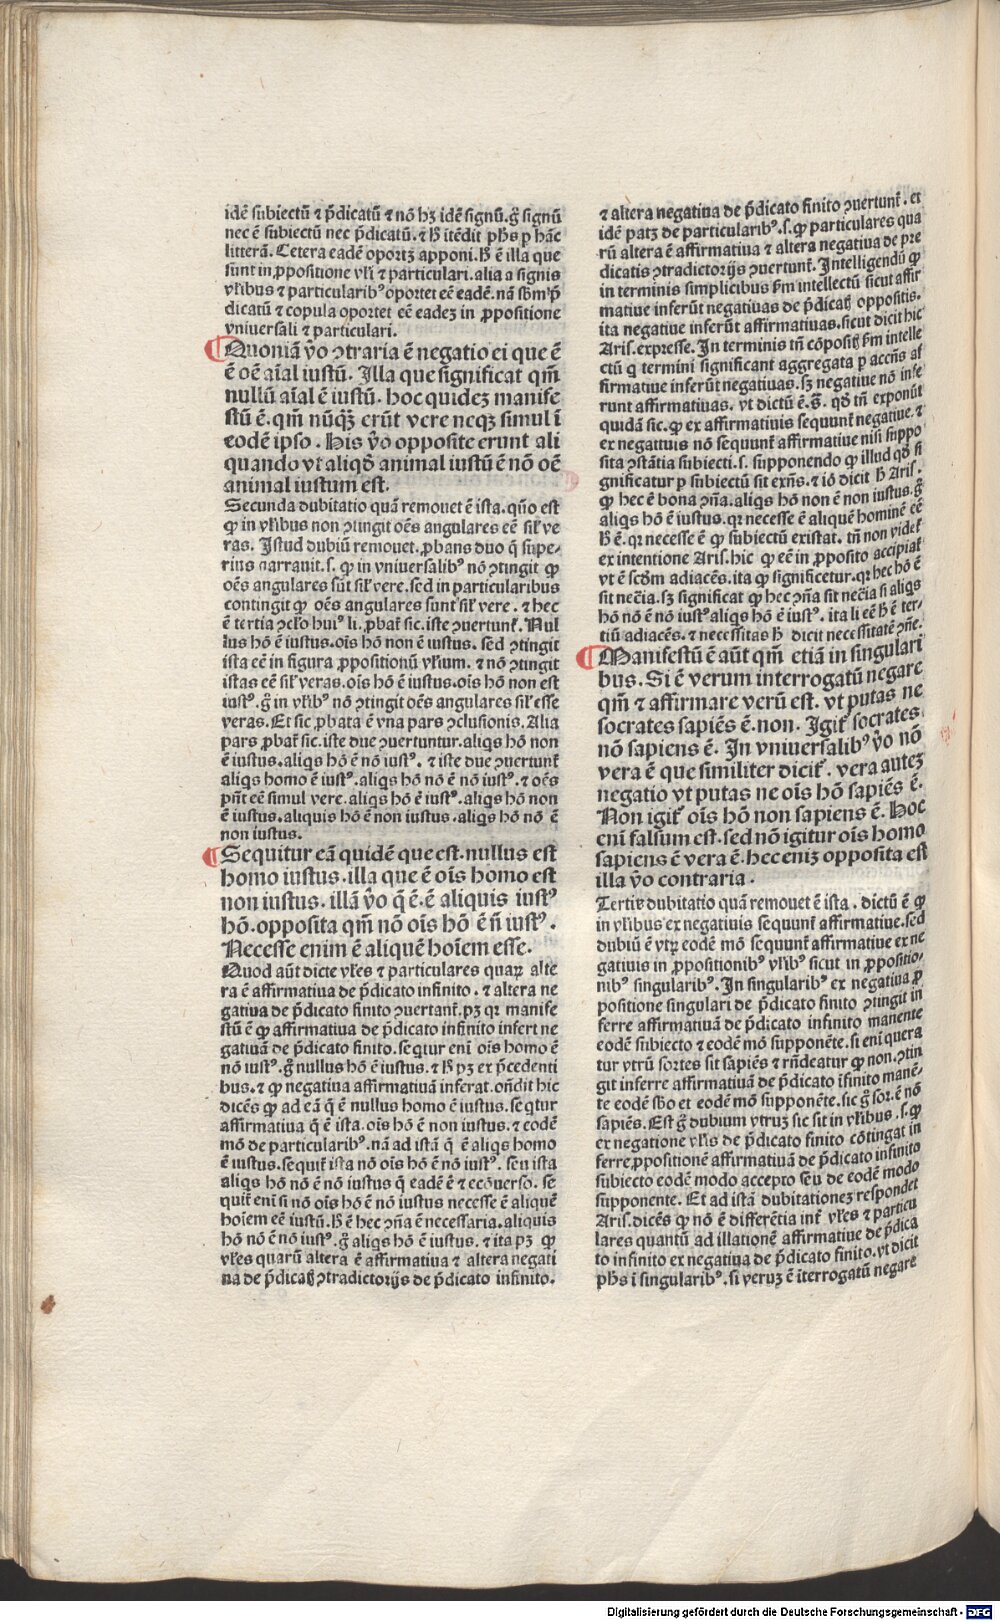 idē subiectū ⁊ p̄dicatū ⁊ nō hꝫ idē signū. g̊ signū
nec ē subiectū nec p̄dicatū. ⁊ h̄ itēdit ph̄s p hāc
litterā. Cetera eadē oportꝫ apponi. h̄ ē illa que
sunt in ꝓpositione vl̓i ⁊ particulari. alia a signis
vl̓ibus ⁊ particularibꝰ oportet eē eadē. nā sb̄m p̄
dicatū ⁊ copula oportet eē eadeꝫ in ꝓpositione
vniuersali ⁊ particulari.
Quoniā v̓o ꝯtraria ē negatio ei que ē
ē oē aīal iustū. Illa que significat qm̄
nullū aīal ē iustū. hoc quideꝫ manife
stū ē. qm̄ nūqꝫ erūt vere neqꝫ simul ī
eodē ipso. His v̓o opposite erunt ali
quando vt aliqd̄ animal iustū ē nō oē
animal iustum est.
Secunda dubitatio quā remouet ē ista. qn̄o est
ꝙ in vl̓ibus non ꝯtingit oēs angulares eē sil̓ ve
ras. Istud dubiū remouet. ꝓbans duo q̄ supe-
rius narrauit. s. ꝙ in vniuersalibꝰ nō ꝯtingit ꝙ
oēs angulares sūt sil̓ vere. sed in particularibus
contingit ꝙ oēs angulares sunt sil̓ vere. ⁊ hec
ē tertia ꝯclo̓ huiꝰ li. ꝓbat̄ sic. iste ꝯuertunt̄. Nul
lus hō ē iustus. oīs hō non ē iustus. sed ꝯtingit
ista eē in figura ꝓpositionū vl̓ium. ⁊ nō ꝯtingit
istas eē sil̓ veras. oīs hō ē iustus. oīs hō non est
iustꝰ. g̊ in vl̓ibꝰ nō ꝯtingit oēs angulares sil̓ esse
veras. Et sic ꝓbata ē vna pars ꝯclusionis. Alia
pars ꝓbat̄ sic. iste due ꝯuertuntur. aliqs hō non
ē iustus. aliqs hō ē nō iustꝰ. ⁊ iste due ꝯuertunt̄
aliqs homo ē iustꝰ. aliqs hō nō ē nō iustꝰ. ⁊ oēs
pn̄t eē simul vere. aliqs hō ē iustꝰ. aliqs hō non
ē iustus. aliquis hō ē non iustus. aliqs hō nō ē
non iustus.
Sequitur eā quidē que est. nullus est
homo iustus. illa que ē oīs homo est
non iustus. illā v̓o q̄ ē. ē aliquis iustꝰ
hō. opposita qm̄ nō oīs hō ē n̄ iustꝰ.
Necesse enim ē aliquē hoīem esse.
Quod aūt dicte vl̓es ⁊ particulares quaꝝ alte
ra ē affirmatiua de p̄dicato infinito. ⁊ altera ne
gatiua de p̄dicato finito ꝯuertant̄. pꝫ qr manife
stū ē ꝙ affirmatiua de p̄dicato infinito infert ne
gatiuā de p̄dicato finito. seqtur eni oīs homo ē
nō iustꝰ. g̊ nullus hō ē iustus. ⁊ h̄ pꝫ ex p̄cedenti
bus. ⁊ ꝙ negatiua affirmatiuā inferat. oñdit hic
dicēs ꝙ ad eā q̄ ē nullus homo ē iustus. seqtur
affirmatiua q̄ ē ista. oīs hō ē non iustus. ⁊ eodē
mō de particularibꝰ. nā ad istā q̄ ē aliqs homo
ē iustus. sequit̄ ista nō oīs hō ē nō iustꝰ. seu ista
aliqs hō nō ē nō iustus q̄ eadē ē ⁊ ecōuerso. se
quit̄ eni si nō oīs hō ē nō iustus necesse ē aliquē
hoīem eē iustū. h̄ ē hec ꝯn̄a ē necessaria. aliquis
hō nō ē nō iustꝰ. g̊ aliqs hō ē iustus. ⁊ ita pꝫ ꝙ
vl̓es quarū altera ē affirmatiua ⁊ altera negati
na de p̄dicat̄ ꝯtradictorijs de p̄dicato infinito.
⁊ altera negatiua de p̄dicato finito ꝯuertunt̄. et
idē patꝫ de particularibꝰ. s. ꝙ particulares qua
rū altera ē affirmatiua ⁊ altera negatiua de pre
dicatis ꝯtradictorijs ꝯuertunt̄. Intelligendū ꝙ
in terminis simplicibus ẜm intellectū sicut affir
matiue inferūt negatiuas de p̄dicat̄ oppositis.
ita negatiue inferūt affirmatiuas. sicut dicit hic
Aris. expresse. In terminis tn̄ cōposit̄ ẜm intelle
ctū q termini significant aggregata p accn̄s af
firmatiue inferūt negatiuas. sꝫ negatiue nō infe
runt affirmatiuas. vt dictū ē. s̄. qd̄ tn̄ exponūt
quidā sic. ꝙ ex affirmatiuis sequunt̄ negatiue. ⁊
ex negatiuis nō sequunt̄ affirmatiue nisi suppo
sita ꝯstātia subiecti. s. supponendo ꝙ illud qd̄ si
gnificatur p subiectū sit exn̄s. ⁊ iō dicit h̄ Aris.
ꝙ hec ē bona ꝯn̄a. aliqs hō non ē non iustus. g̊
aliqs hō ē iustus. qr necesse ē aliquē hominē eē
h̄ ē. qr necesse ē ꝙ subiectū existat. tn̄ non videt̄
ex intentione Aris. hic ꝙ eē in ꝓposito accipiat̄
vt ē scd̄m adiacēs. ita ꝙ significetur. qr hec hō ē
sit nec̄ia. sꝫ significat ꝙ hec ꝯn̄a sit nec̄ia si aliqs
hō nō ē nō iustꝰ aliqs hō ē iustꝰ. ita li eē h̄ ē ter-
tiū adiacēs. ⁊ necessitas h̄ dicit necessitatē ꝯn̄e.
Manifestū ē aūt qm̄ etiā in singulari
bus. Si ē verum interrogatū negare
qm̄ ⁊ affirmare verū est. vt putas ne
socrates sapiēs ē. non. Igit̄ socrates
nō sapiens ē. In vniuersalibꝰ v̓o nō
vera ē que similiter dicit̄. vera auteꝫ
negatio vt putas ne oīs hō sapiēs ē.
Non igit̄ oīs hō non sapiens ē. Hoc
eni falsum est. sed nō igitur oīs homo
sapiēs ē vera ē. hec eniꝫ opposita est
illa v̓o contraria.
Tertia dubitatio quā remouet ē ista. dictū ē ꝙ
in vl̓ibus ex negatiuis sequunt̄ affirmatiue. sed
dubiū ē vtꝝ eodē mō sequunt̄ affirmatiue ex ne
gatiuis in ꝓpositionibꝰ vl̓ibꝰ sicut in ꝓpositio-
nibꝰ singularibꝰ. In singularibꝰ ex negatiua ꝓ
positione singulari de p̄dicato finito ꝯtingit in
ferre affirmatiuā de p̄dicato infinito manente
eodē subiecto ⁊ eodē mō supponēte. si eni quera
tur vtrū sortes sit sapiēs ⁊ rn̄deatur ꝙ non. ꝯtin
git inferre affirmatiuā de p̄dicato īfinito manē-
te eodē sb̄o et eodē mō supponēte. sic g̊ sor. ē nō
sapiēs. Est g̊ dubium vtruꝫ sic sit in vl̓ibus. s. ꝙ
ex negatione vl̓is de p̄dicato finito cōtingat in
ferre ꝓpositionē affirmatiuā de p̄dicato infinito
subiecto eodē modo accepto seu de eodē modo
supponente. Et ad istā dubitationeꝫ respondet
Aris. dicēs ꝙ nō ē differētia int̄ vl̓es ⁊ particu
lares quantū ad illationē affirmatiue de p̄dica
to infinito ex negatiua de p̄dicato finito. vt dicit
ph̄s ī singularibꝰ. si veruꝫ ē īterrogatū negare
Digitalisierung gefördert durch die Deutsche Forschungsgemeinschaft - DFG